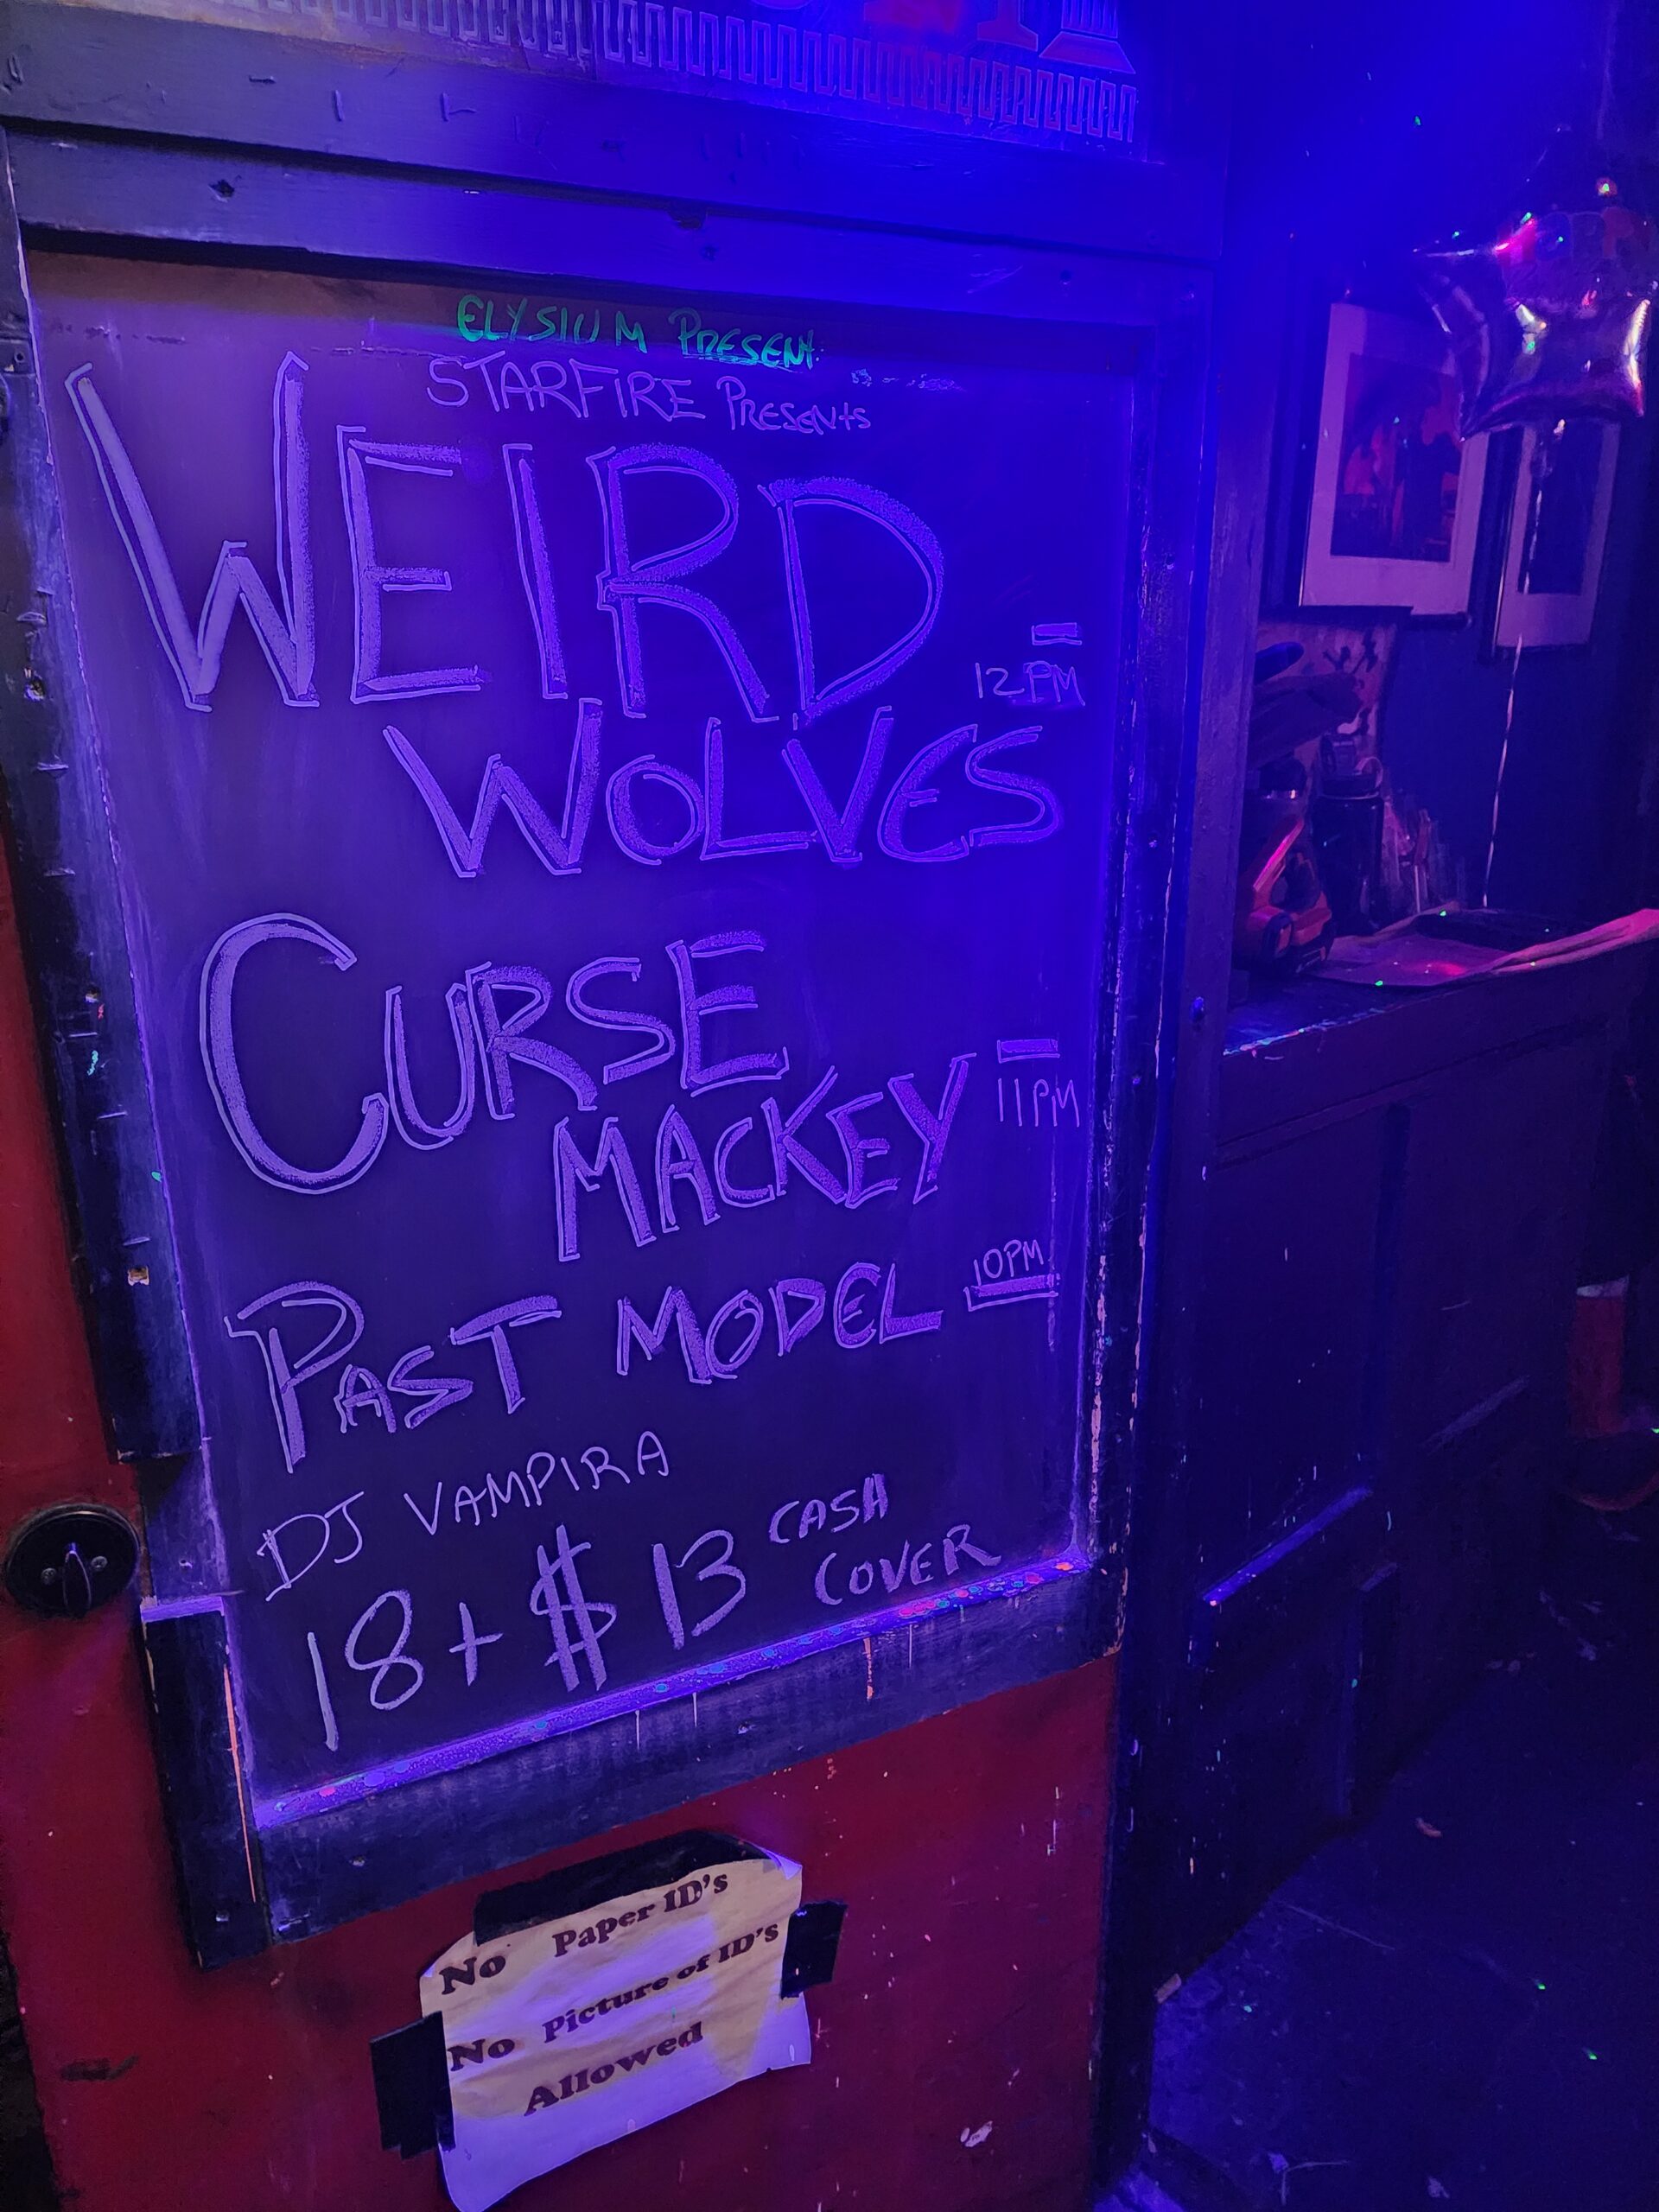 ELYSIUM PRESENT
STARFIRE PRESENTS
WEIRD
12PM
WOLVES
CURSE
MACKEY
11PM
PAST MODEL 10PM
DJ VAMPIRA
18+ $13 CASH
COVER
No Paper ID's
No Picture of ID's
Allowed